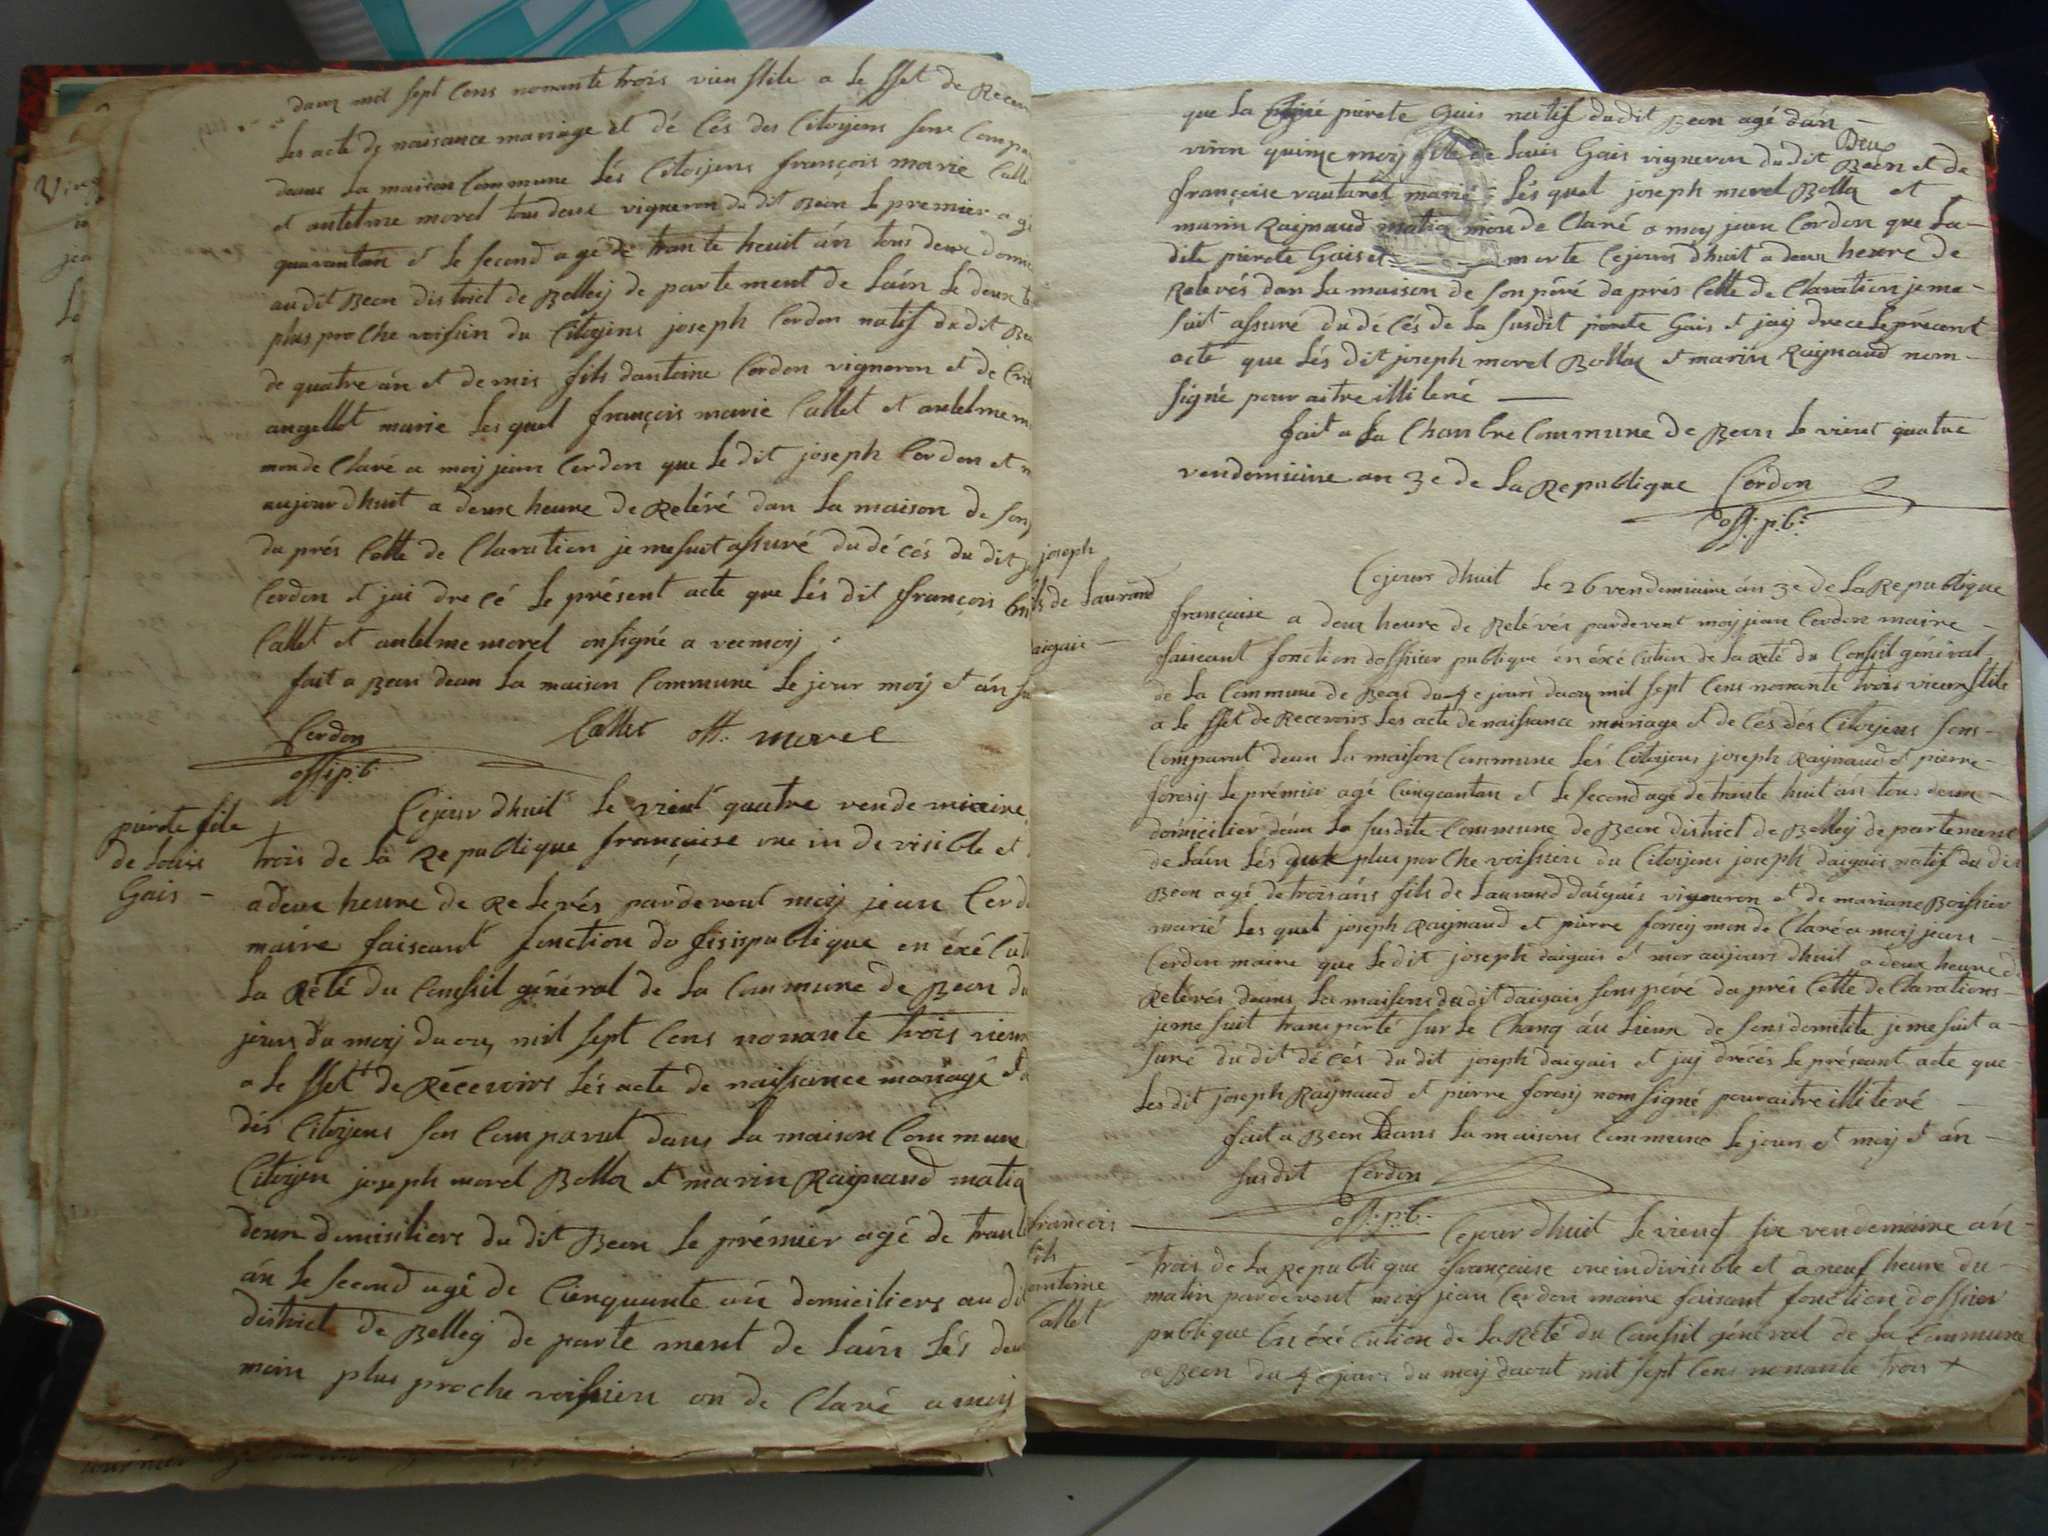 daou mil sept Cens nonante trois vieu stile a le sset de Recev
les acte de naisance mariage et dé cés des Citoyens sont Compa
deans la maison Commune lés Citoyens françois marie Calle
et antelme morel tous deux vigneron du dit Beon le premier agé
quarantan et le second agé de trante heuit án tous deux domi
audit Beon district de Belley de parte ment de láin lé deux te
plus proche voissin du Citoyens joseph Cerdon natif du dit Be
de quatre án et demis fils dantoine Cerdon vigneron et de
angellot marie les quel françois marie Callet et antelme m
mon de Claré a moy jean Cerdon que le dit joseph Cerdon et m
aujourdhuit a deux heure de Reléré dan la maison de son
da prés Cette de Claration je me suit assuré du dé cés du dit j
Cerdon et jai dre cé le présent acte que lés dit françois
Callet et antelme morel onsigné a vec moy
fait a Beon dean la maison Commune le jour moy et án su
Cerdon Callet off. morel
offi.p.b.
pierete file
de Louis
Gais -
Cejour dhuit le vient quatre vendemieaire
trois de la Republique françaisse une in de visible et
a deux heure de Relevés pardevent moy jean Cerd
maire faiseant fonction do fisispublique en éxé Cut
la Rété du Conssil général de la Commune de Beon du
jours du moy daou mil sept Cens nonante trois vieux
a le sset de Récevoirs lés acte de naissance mariagé et d
dés Citoyens son Comparut dans la maison Commune
Citoyen joseph morel Bolla et marin Raynaud matia
deux domisiliers du dit Beon le prémier agé de trant
án le second agé de Cinquante án domiciliers au di
district de Belley de parte ment de láin lés deux
moin plus proche voissien on de Claré a moy
que la pierete Gais natif dudit Beon agé dán -
viron quinze moy file de Louis Gais vigneron du dit Beon et de
Beux
françoise vautaret marié lés quel joseph morel Bolla et
marin Raynaud matia mon de Claré a moy jean Cerdon que la-
dite pierete Gais et morte Cejours dhuit a deux heure de
Relevés dan la maison de son péré da prés Cette de Claration je me-
suit assuré du dé cés de la susdit pierete Gais et jay drece le précent
acte que lés dit joseph morel Bolla et marin Raynaud nom-
signé pour aitre illiteré -
fait a la Chanbre Commune de Beon le vient quatre
vendemiaire an 3e de la Republique Cerdon
off.p.b.
joseph
fils de Laurand
daigais -
Cejour dhuit le 26 vendemiaire án 3e de la Republique
françaisse a deux heure de Relévés pardevent moy jean Cerdon maire -
faiseant fonction dofficier publique én éxé Cution de la Rété du Conssil général
de la Commune de Beon du 4e jours daou mil sept Cens nonante trois vieux stile
a le sset de Recevoirs les acte de naissance mariage et de Cés dés Citoyens sons-
Comparut dean la maison Commune lés Citoyens joseph Raynaud et pierre-
foresy le prémier agé Cinqeantan et le second agé de trante huit án tous deux-
domicilier déan la susdite Commune de Beon district de Belley de partement
de láin lés quel plus porche voissien du Citoyens joseph daigais natif du dit
Beon agé de troisáns fils de Laurand daigais vigneron et de mariane Boissier
marié les quel joseph Raynaud et pierre foresy mon de Claré a moy jean -
Cerdon maire que le dit joseph daigais et mor aujours dhuit a deux heure de
Relévés deans la maisons dudit daigais sons péré da prés Cette de Clarations-
je me suit transporté sur le Chanq áu lieux de sons domicile je me suit a-
suré du dit dé cés du dit joseph daigais et jay drécés le préseant acte que-
les dit joseph Raynaud et pierre foresy nom signé pour aitre illiteré -
fait a Beon Dans la maisons Commune le jours et moy et án -
susdit Cerdon
off.p.b.
françois -
fils
antoine
Callet
Cejour dhuit le vient six vendemiaire án -
trois de la Republi que françaisse une indivisible et a neuf heure du-
matin pardevent moy jean Cerdon maire faisant fonction dofficier
publique En éxé Cution de la Rété du Conssil général de la Commune
de Beon du 4e jours du moy daout mil sept Cens nonante trois +